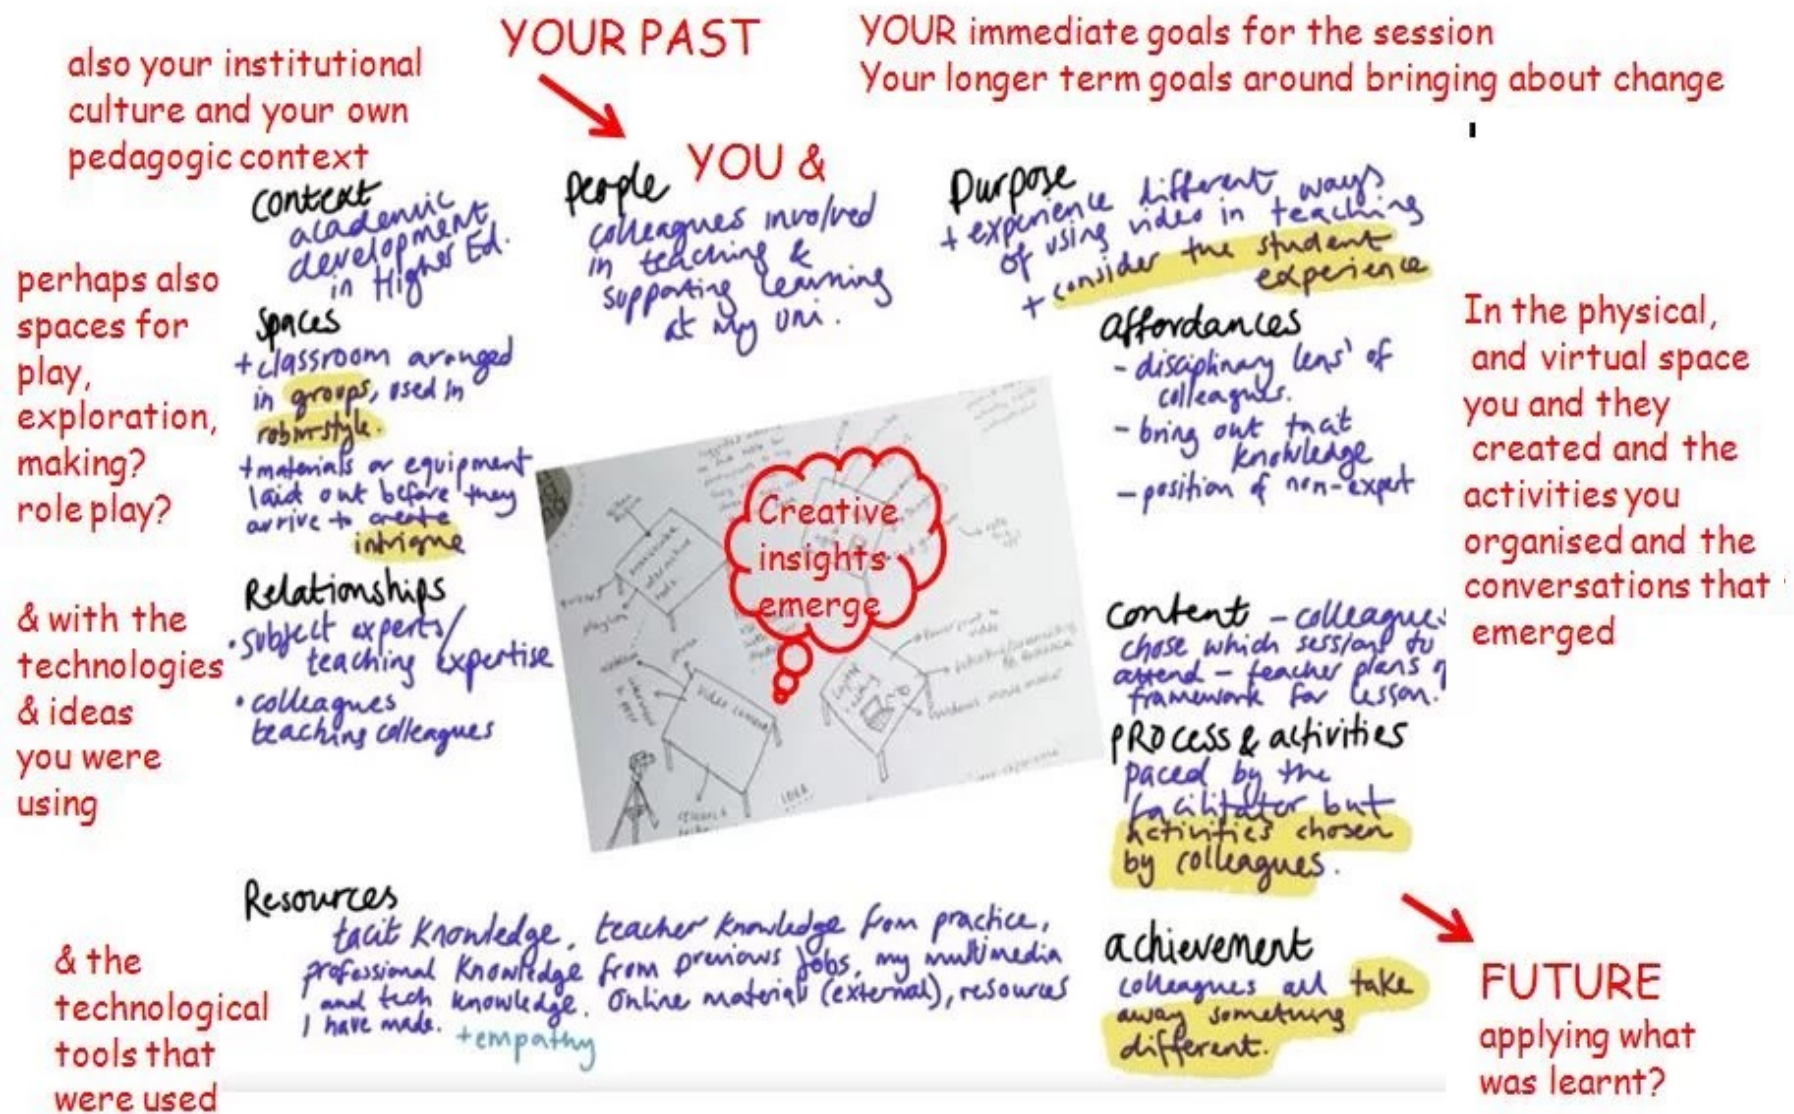 YOUR PAST
YOUR immediate goals for the session
Your longer term goals around bringing about change
also your institutional
culture and your own
pedagogic context
YOU &
Context
academic
development
in Higher Ed.
People
colleagues involved
in teaching &
supporting learning
at my uni.
Purpose
+ experience different ways
of using video in teaching
+ consider the student
experience
perhaps also
spaces for
play,
exploration,
making?
role play?
Spaces
+ classroom aranged
in groups, used in
robin-style.
+ materials or equipment
laid out before they
arrive to create
intrigue
affordances
- disciplinary lens' of
colleagues.
- bring out tacit
knowledge
- position of non-expert
In the physical,
and virtual space
you and they
created and the
activities you
organised and the
conversations that
emerged
Creative
insights
emerge
& with the
technologies
& ideas
you were
using
Relationships
• subject experts/
teaching expertise
• colleagues
teaching colleagues
video camera
IDEA
Content - colleagues
chose which sessions to
attend - teacher plans
framework for lesson.
PROcess & activities
paced by the
facilitator but
activities chosen
by colleagues.
Resources
tacit knowledge, teacher knowledge from practice,
professional knowledge from previous jobs, my multimedia
and tech knowledge. Online material (external), resources
I have made. + empathy
& the
technological
tools that
were used
achievement
colleagues all take
away something
different.
FUTURE
applying what
was learnt?